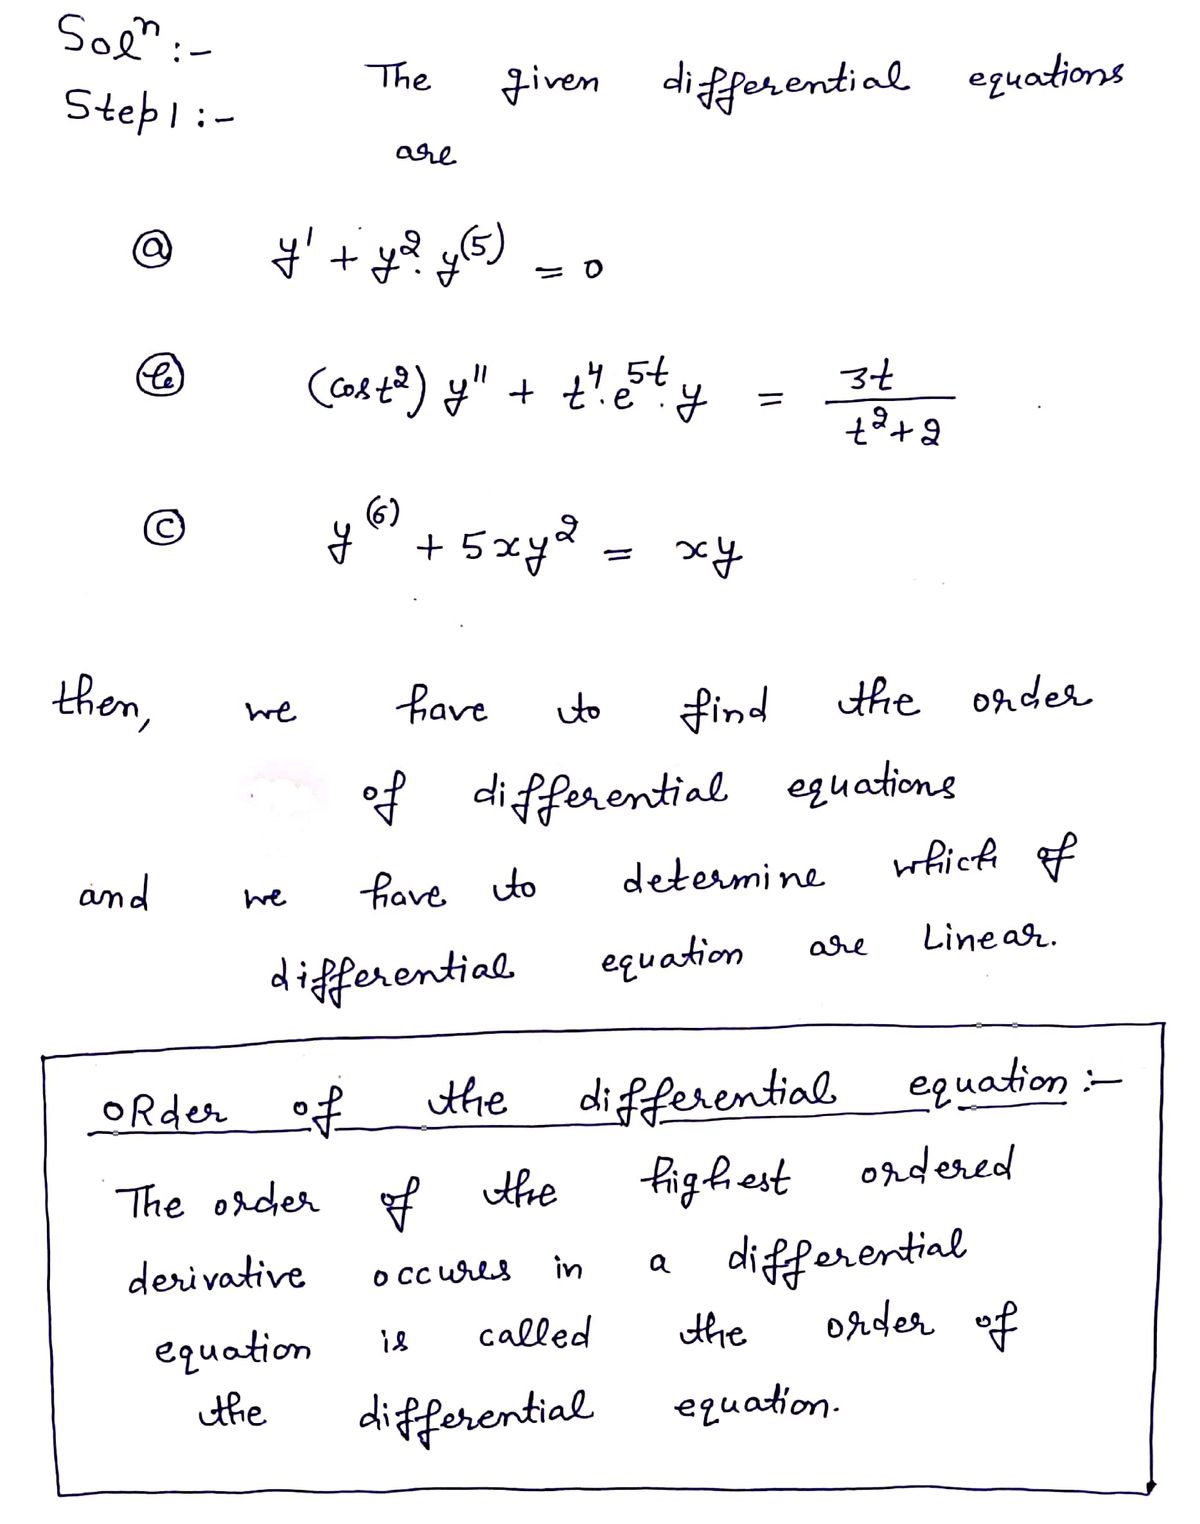 Solⁿ :-
Step1 :- The given differential equations
are
ⓐ y' + y². y⁽⁵⁾ = 0
ⓑ (cost²) y'' + t⁴. e⁵ᵗ. y = 3t / t²+2
ⓒ y⁽⁶⁾ + 5xy² = xy
then, we have to find the order
of differential equations
and we have to determine which of
differential equation are Linear.
oRder of the differential equation :-
The order of the highest ordered
derivative occures in a differential
equation is called the order of
the differential equation.